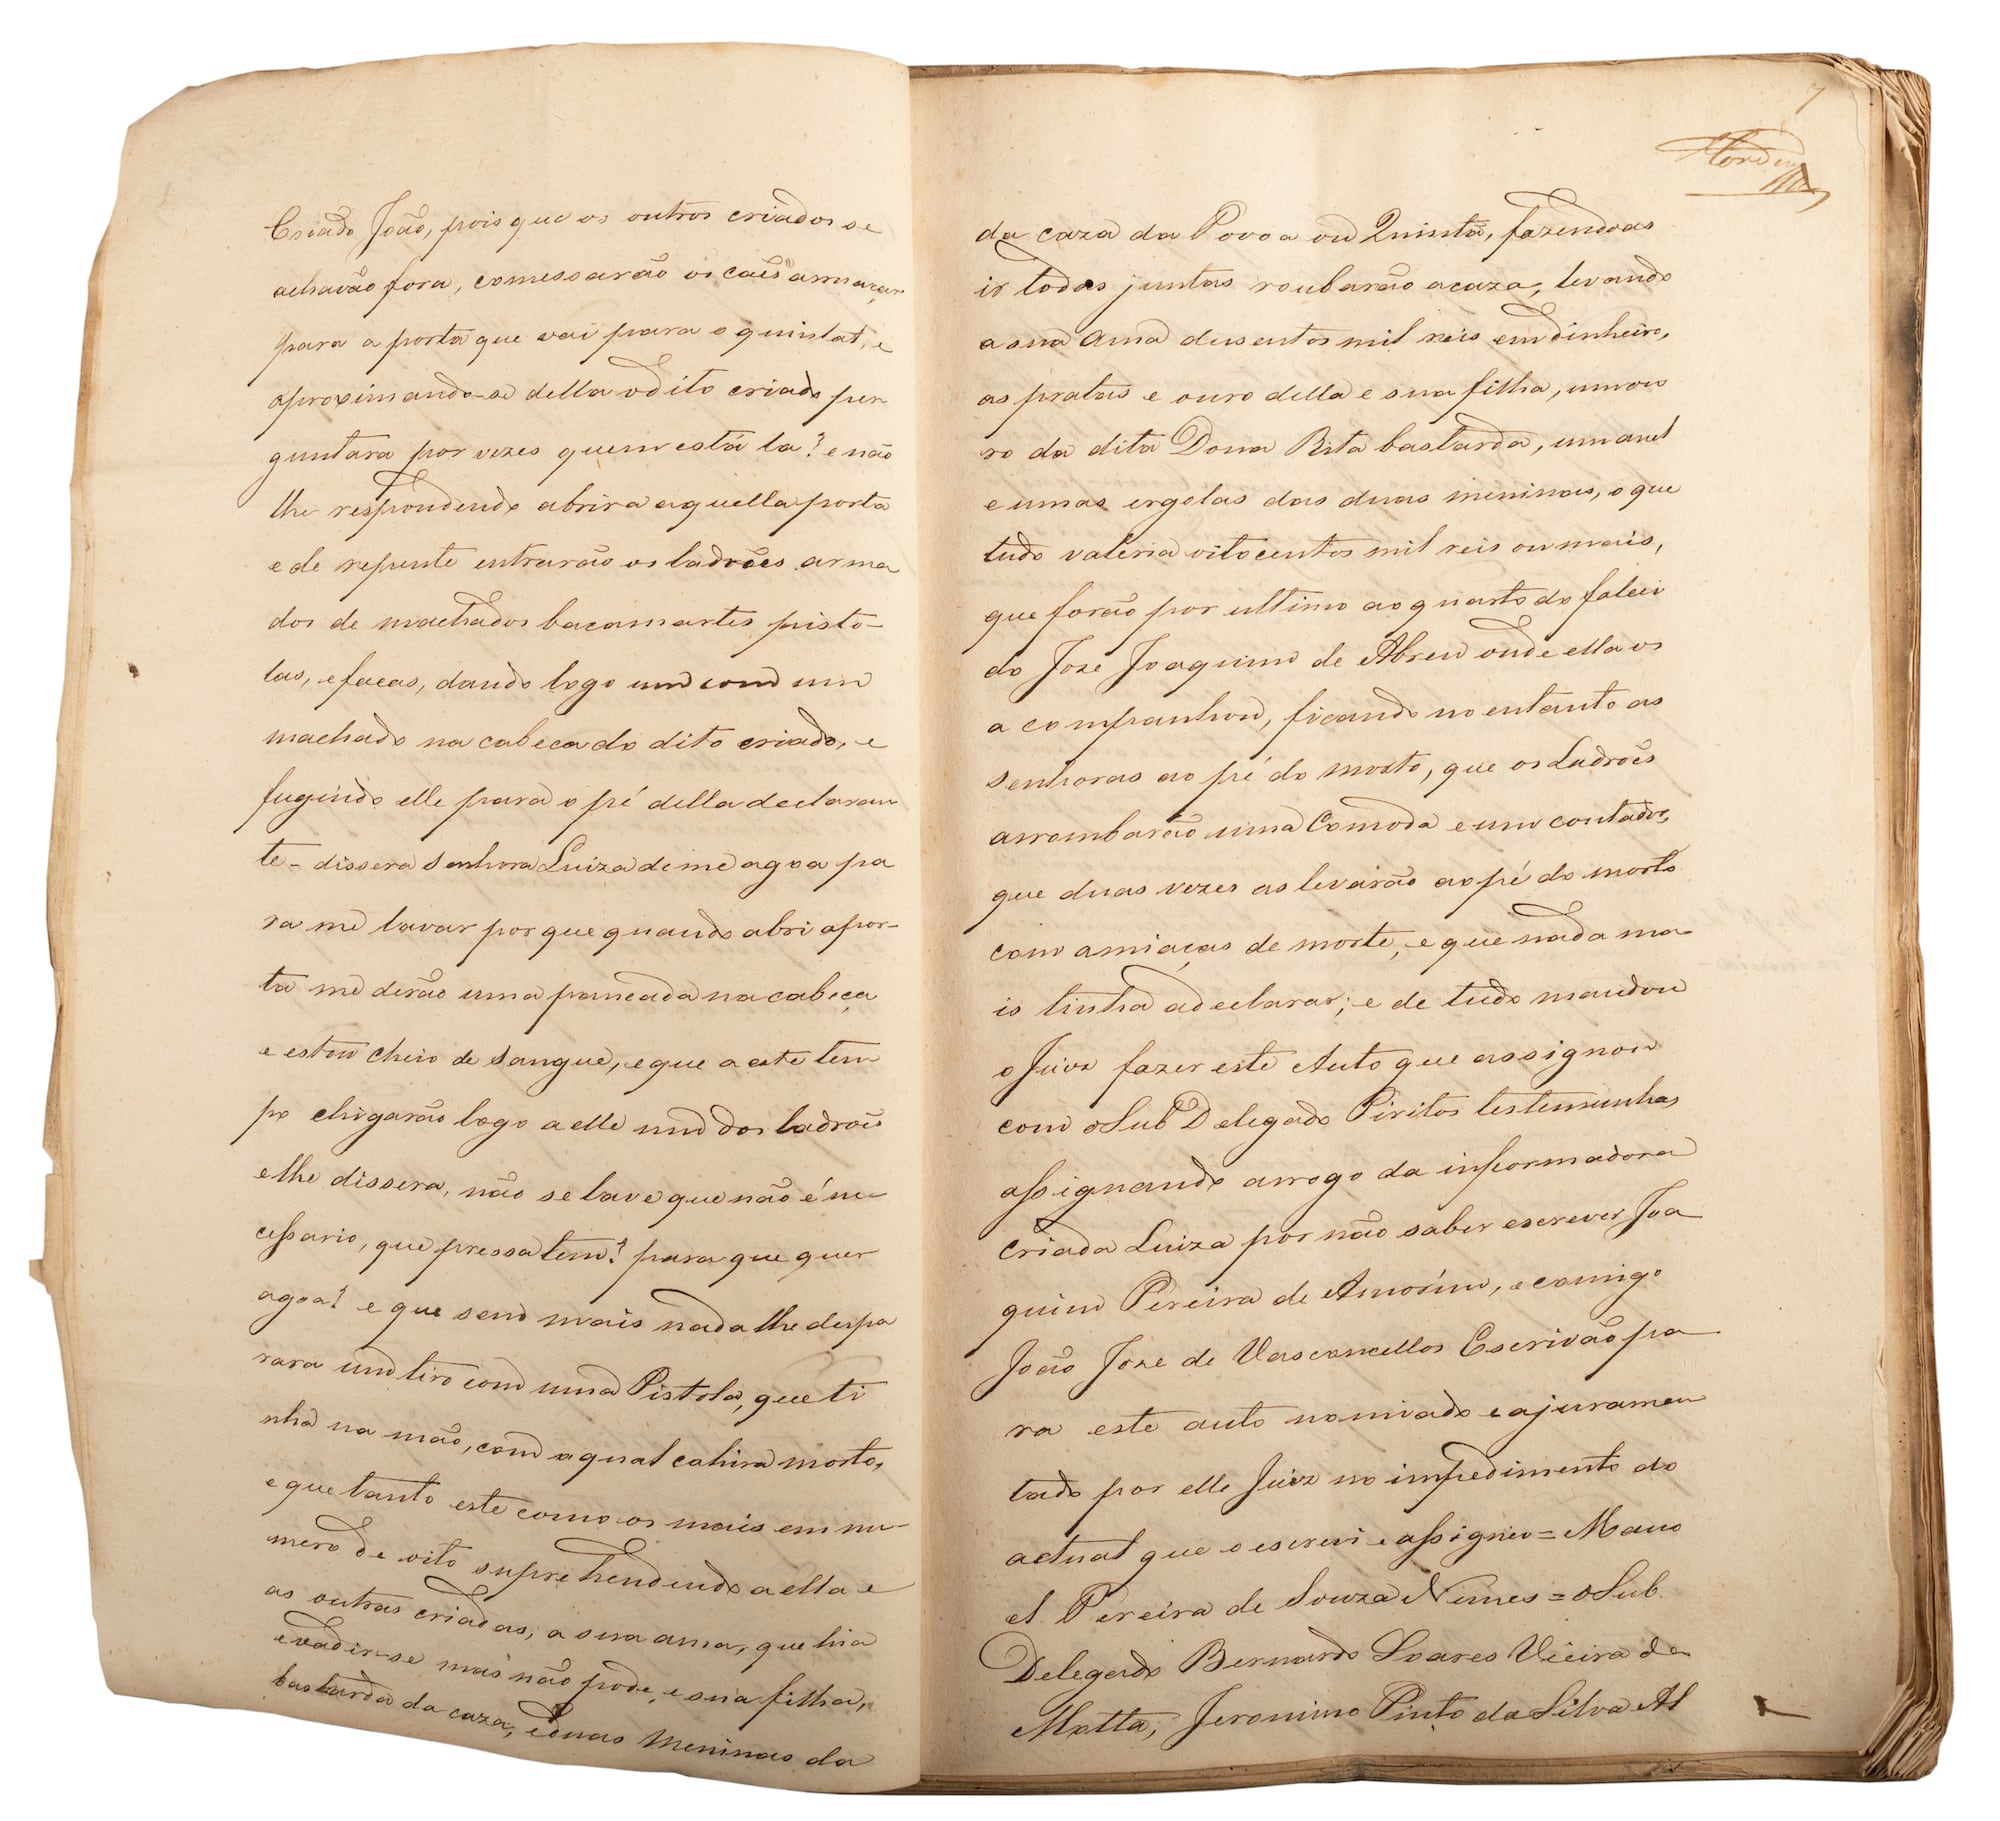 Criado João, pois que os outros criados se
achavão fora, comessarão os caẽs a rnaçar
para a porta que vai para o quintal, e
aproximando-se della o dito criado per
guntára por vezes quem está la? e não
lhe respondendo abrira aquella porta
e de repente entrarão os ladrões arma
dos de machados bacamartes pisto-
las, e facas, dando logo um com um
machado na cabeca do dito criado, e
fugindo elle para o pé della declaran
te- dissera senhora Luiza de me agoa pa
ra me lavar por que quando abri a por-
ta me derão uma pancada na cabeça
e estou cheio de sangue, e que a este tem
po chigarão logo a elle um dos ladrões
e lhe dissera, não se lave que não é ne
cessario, que pressa tem? para que quer
agoa? e que sem mais nada lhe despa
rara um tiro com uma Pistola, que ti
nha na mão, com o qual cahira morto,
e que tanto este como os mais em nu-
mero de oito suprehendendo a ella e
as outras criadas, a sua ama, que hia
evadir-se mas não pode, e sua filha,
bastarda da caza, e duas meninas da
7
da caza da Povoa ou Quintã, fazendo as
ir todas juntas roubarão a caza, levando
a sua ama dusentos mil reis em dinheiro,
as pratas e ouro della e sua filha, um ou
ro da dita Dona Rita bastarda, um anel
e umas ergolas das duas meninas, o que
tudo valeria oitocentos mil reis ou mais,
que forão por ultimo ao quarto do faleci
do Joze Joaquim de Abreu onde ella os
a companhou, ficando no entanto as
senhoras ao pé do morto, que os Ladrões
arrombarão uma Comoda e um contador,
que duas vezes as levarão ao pé do morto
com amiaças de morte, e que nada ma-
is tinha a declarar; e de tudo mandou
o Juiz fazer este Auto que assignou
com o Sub Delegado Piritos testemunhas
assignando arrogo da informadora
criada Luiza por não saber escrever Joa
quim Pereira de Amorim, e comigo
João Joze de Vasconcellos Escrivão pa
ra este auto nomiado e ajuramen
tado por elle Juiz no impedimento do
actual que o escrevi e assignei = Mano
el Pereira de Souza Nunes = o Sub.
Delegado Bernardo Soares Vieira da
Motta, Jeronimo Pinto da Silva Al